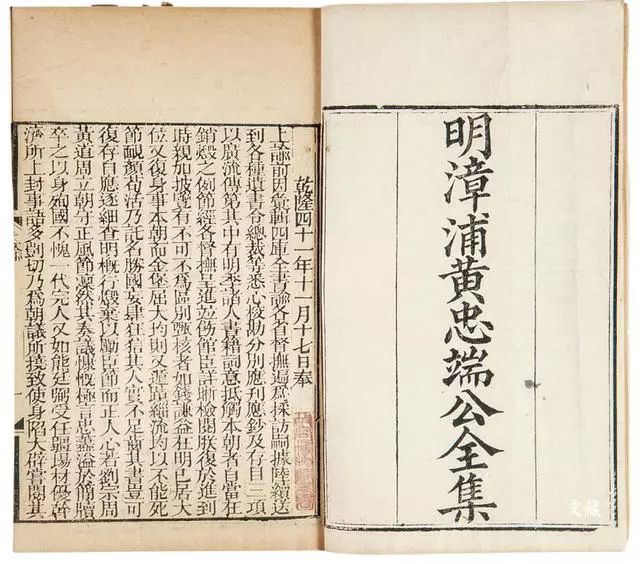 明漳浦黃忠端公全集
乾隆四十一年十一月十七日奉
上諭前因彙輯四庫全書諭各省督撫遍爲採訪嗣據陸續送
到各種遺書令總裁等悉心校勘分別應刊應鈔及存目三項
以廣流傳第其中有明季諸人書籍詞意抵觸本朝者自當在
銷燬之例節經各督撫呈進並飭館臣詳晰檢閱朕復於進到
時親加披覽有不可不爲區別甄核者如錢謙益在明已居大
位又復身事本朝而金堡屈大均則又遁跡緇流均以不能死
節靦顏苟活乃託名勝國妄肆狂狺其人實不足齒其書豈可
復存自應逐細查明概行燬棄以勵臣節而正人心若劉宗周
黃道周立朝守正風節凜然其奏議慷慨極言忠藎溢於簡牘
卒之以身殉國不愧一代完人又如熊廷弼受任疆場材優幹
濟所上封事語多剴切乃爲朝議所撓致使身陷大辟嘗閱其
文藏